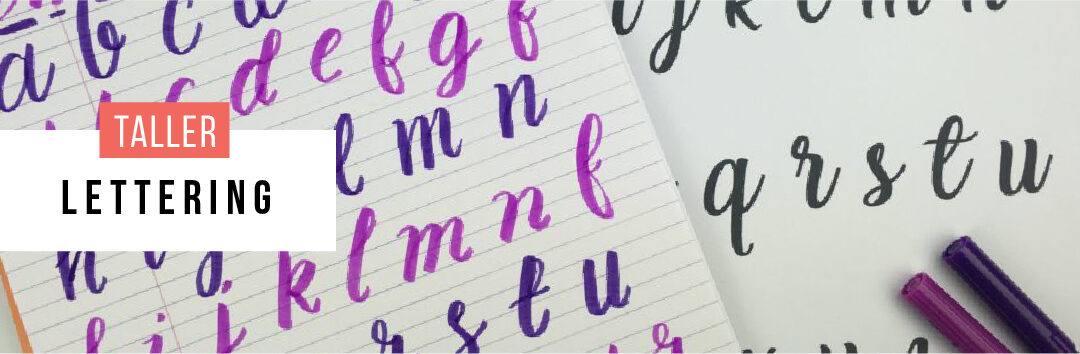 a b c
c d e f g f
TALLER
LETTERING
l m n
h i j k l m n f
r s t u
j k l m n
q r s t u